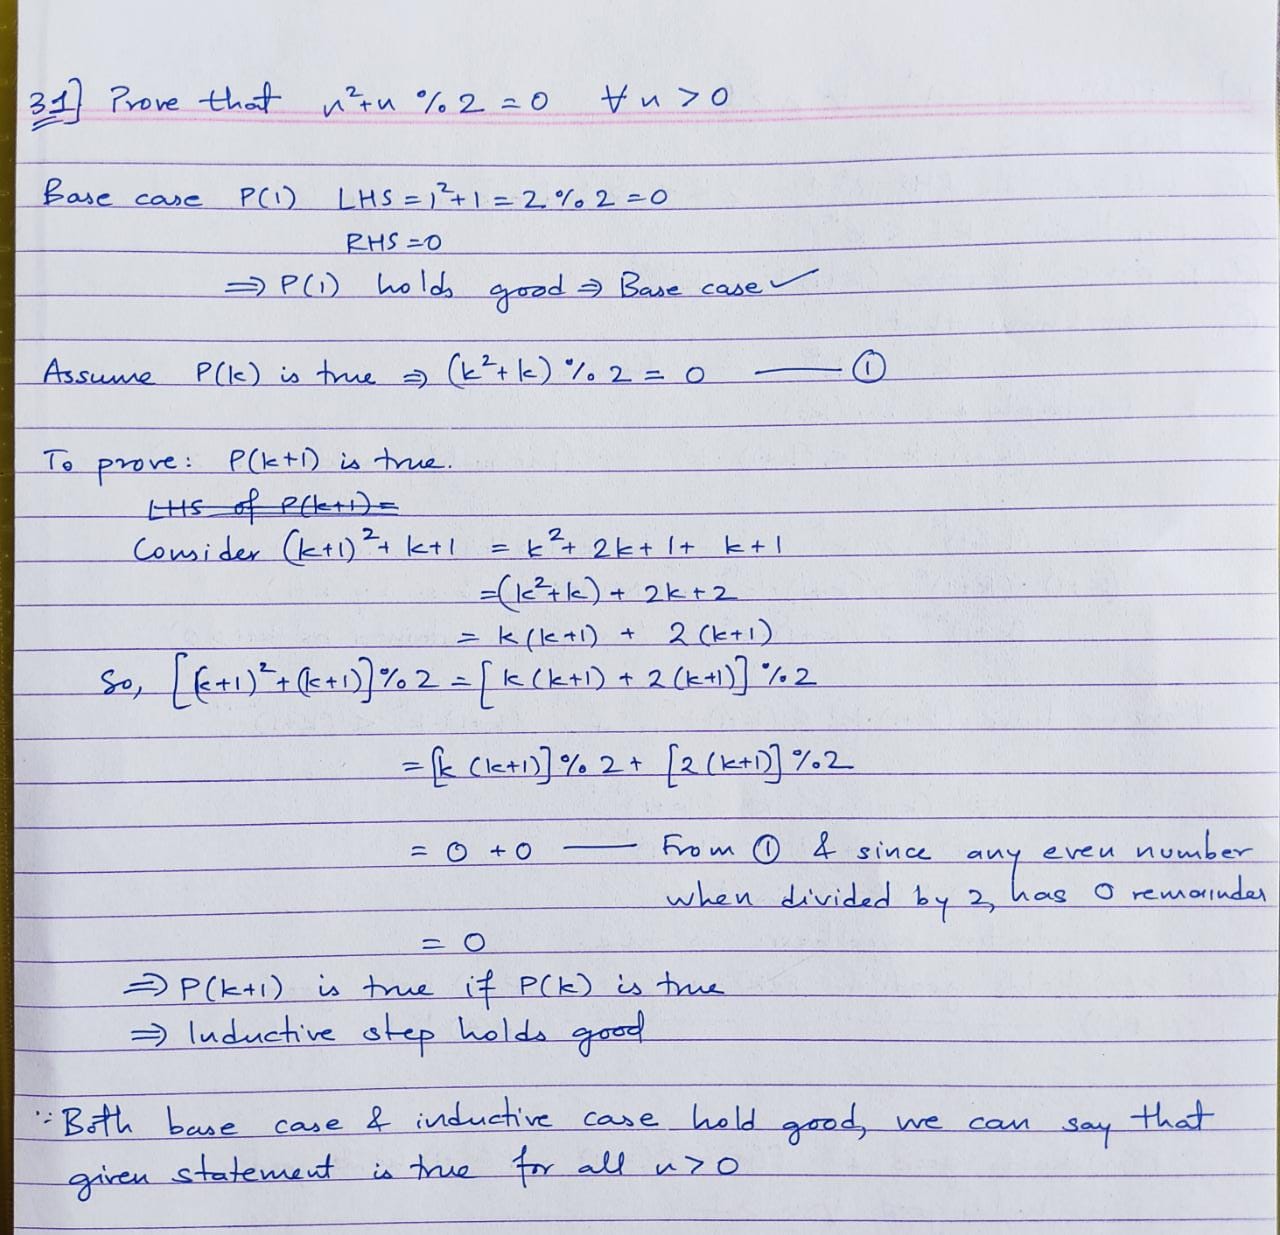 31] Prove that n²+n % 2 = 0 ∀ n > 0
Base case P(1) LHS = 1²+1 = 2 % 2 = 0
RHS = 0
⇒ P(1) holds good ⇒ Base case ✓
Assume P(k) is true ⇒ (k²+k) % 2 = 0 —— ①
To prove: P(k+1) is true.
LHS of P(k+1) =
Consider (k+1)²+ k+1 = k²+ 2k + 1 + k+1
=(k²+k) + 2k+2
= k(k+1) + 2(k+1)
So, [(k+1)²+(k+1)]%2 = [k(k+1) + 2(k+1)] %2
= [k(k+1)] % 2 + [2(k+1)] %2
= 0 + 0 —— From ① & since any even number
when divided by 2, has 0 remainder
= 0
⇒ P(k+1) is true if P(k) is true
⇒ Inductive step holds good
∵ Both base case & inductive case hold good, we can say that
given statement is true for all n>0